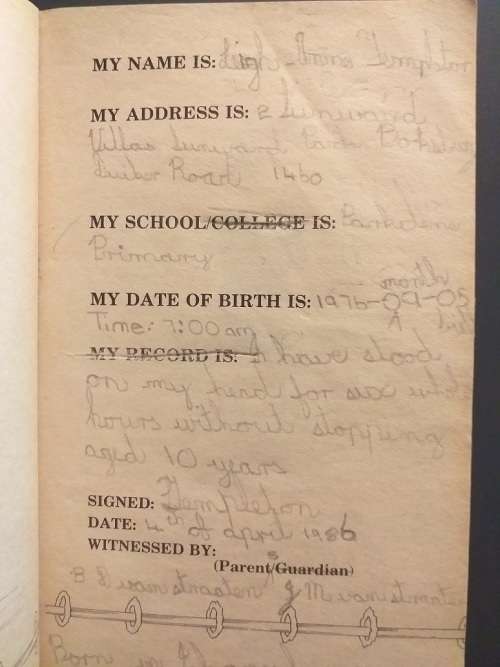 MY NAME IS: Leigh-Anne Templeton
MY ADDRESS IS: 2 Sunward
Villas Sunward Park Boksburg
Road 1460
MY SCHOOL/COLLEGE IS: Parkdene
Primary
month
MY DATE OF BIRTH IS: 1975-09-05
Time: 7:00 am
MY RECORD IS: I have stood
on my head for six whole
hours without stopping
aged 10 years
SIGNED: Templeton
DATE: 4th of april 1986
WITNESSED BY:
(Parents/Guardian)
B S van straaten J M van straaten
Born in